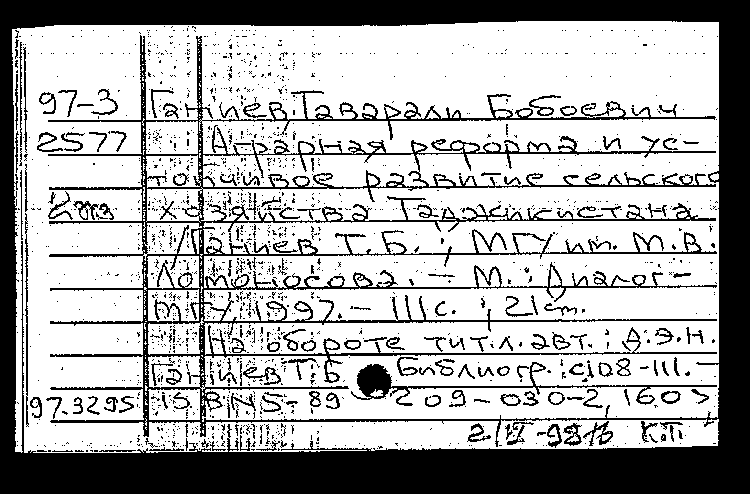 97-3 Ганиев, Таварали Бобоевич
2577 Аграрная реформа и ус-
тойчивое развитие сельского
2 экз хозяйства Таджикистана
/Ганиев Т.Б. ; МГУ им. М.В.
Ломоносова. - М. : Диалог-
МГУ, 1997. - 111с. ; 21см.
На обороте тит.л. авт. : д.э.н.
Ганиев Т.Б. Библиогр.: с.108-111. -
97.3295 ISBN 5-89209-030-2, 160э
К.П.